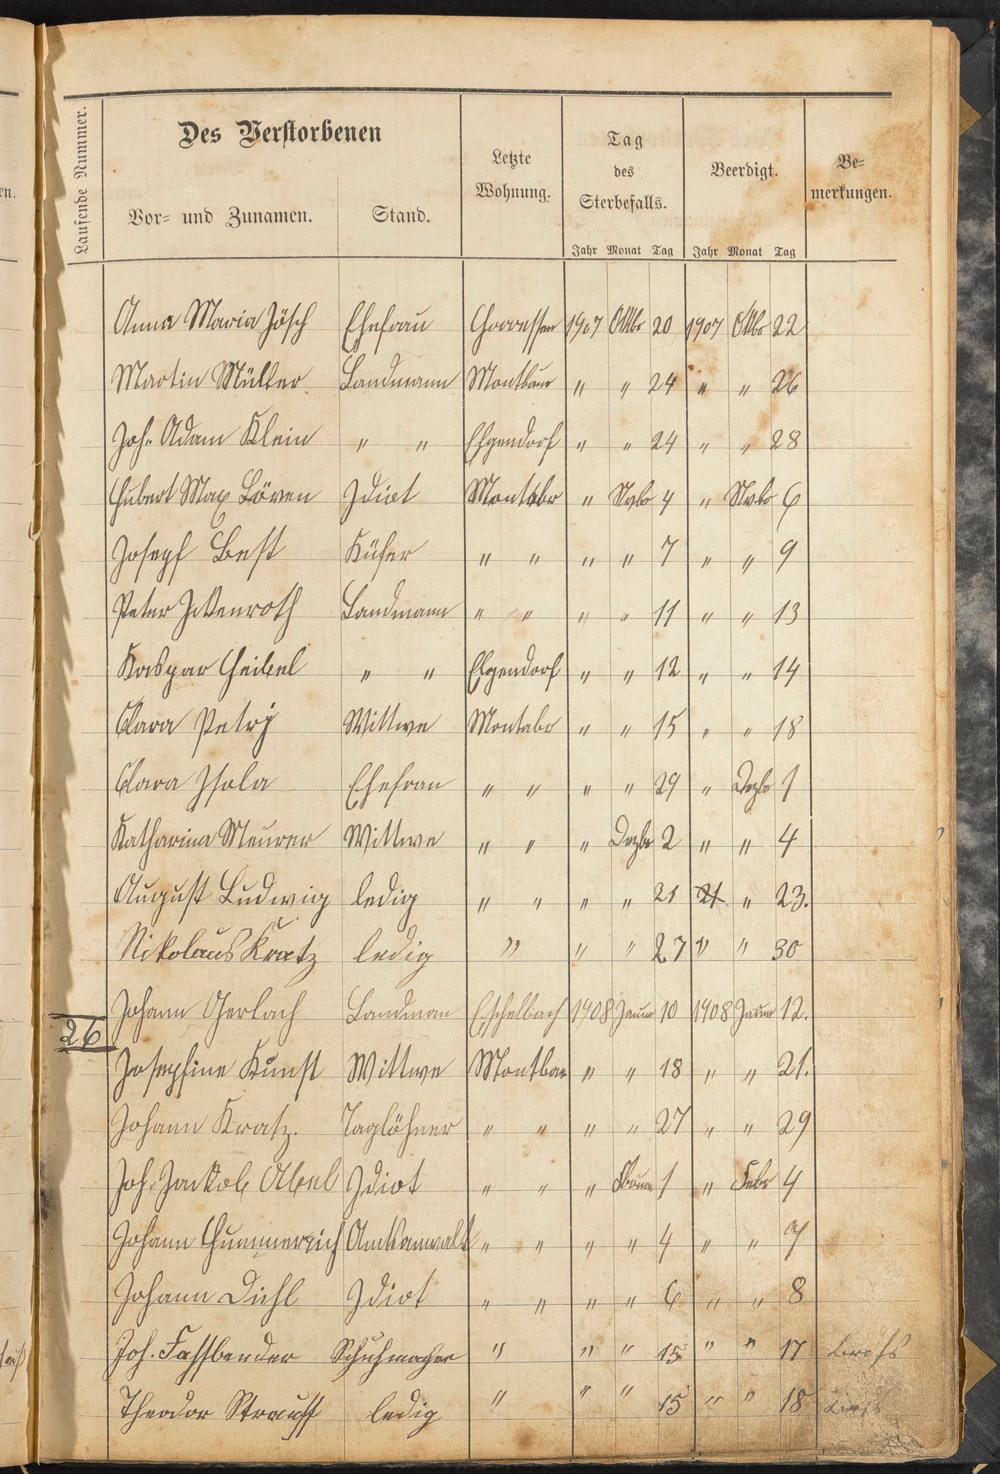 Laufende Nummer.
Des Verstorbenen
Vor= und Zunamen. Stand.
Letzte Wohnung.
Tag des Sterbefalls.
Jahr Monat Tag
Beerdigt.
Jahr Monat Tag
Be= merkungen.
Anna Maria Jösch Ehefrau 1907 Oktbr 20 1907 Oktbr 22
Martin Müller Landmann Montbaur " " 24 " " 26
Joh. Adam Klein " " Elgendorf " " 24 " " 28
Hubert Max Löwen Idiot Montabr " Nvbr 4 " Nvbr 6
Josepf Best Küfer " " " " 7 " " 9
Peter Landmann " " " " 11 " " 13
Kaspar Heibel " " Elgendorf " " 12 " " 14
Clara Petry Wittwe Montabr " " 15 " " 18
Clara Isola Ehefrau " " " " 29 " Dezbr 1
Katharina Meurer Wittwe " " " Dezbr 2 " " 4
August Ludwig ledig " " " " 21 21 " 23.
Nikolaus Kratz ledig " " " 27 " " 30
Johann Gerlach Landman Eschelbach 1908 Januar 10 1908 Januar 12.
26
Josepfine Kunst Wittwe Montbaur " " 18 " " 21.
Johann Kratz. Taglöhner " " " " 27 " " 29
Joh. Jackob Abel Idiot " " " 1 " Febr 4
Johann Gummerich Amtsanwalt " " " " 4 " " 7
Johann Diehl Idiot " " " " 6 " " 8
Joh. Fassbender Schuhmacher " " " 15 " " 17
Theodor Strauss ledig " " " 15 " " 18